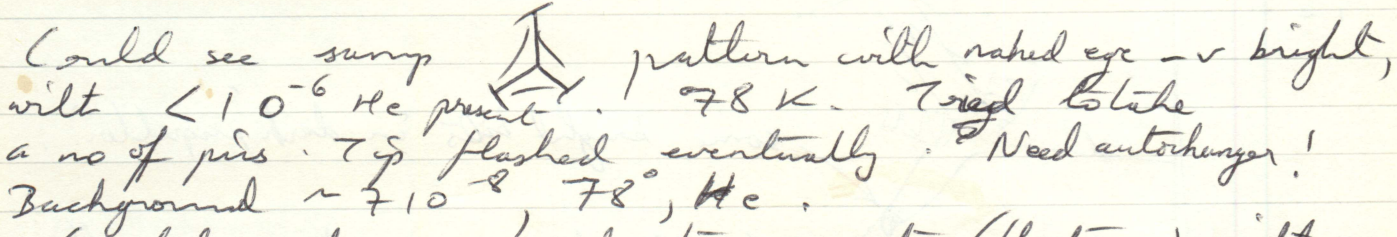 Could see sump pattern with naked eye - v bright,
with < 10⁻⁶ He present. 78 K. Tried to take
a no of pics. Tip flashed eventually. Need autochanger!
Background ~ 7 10⁻⁸, 78°, He.